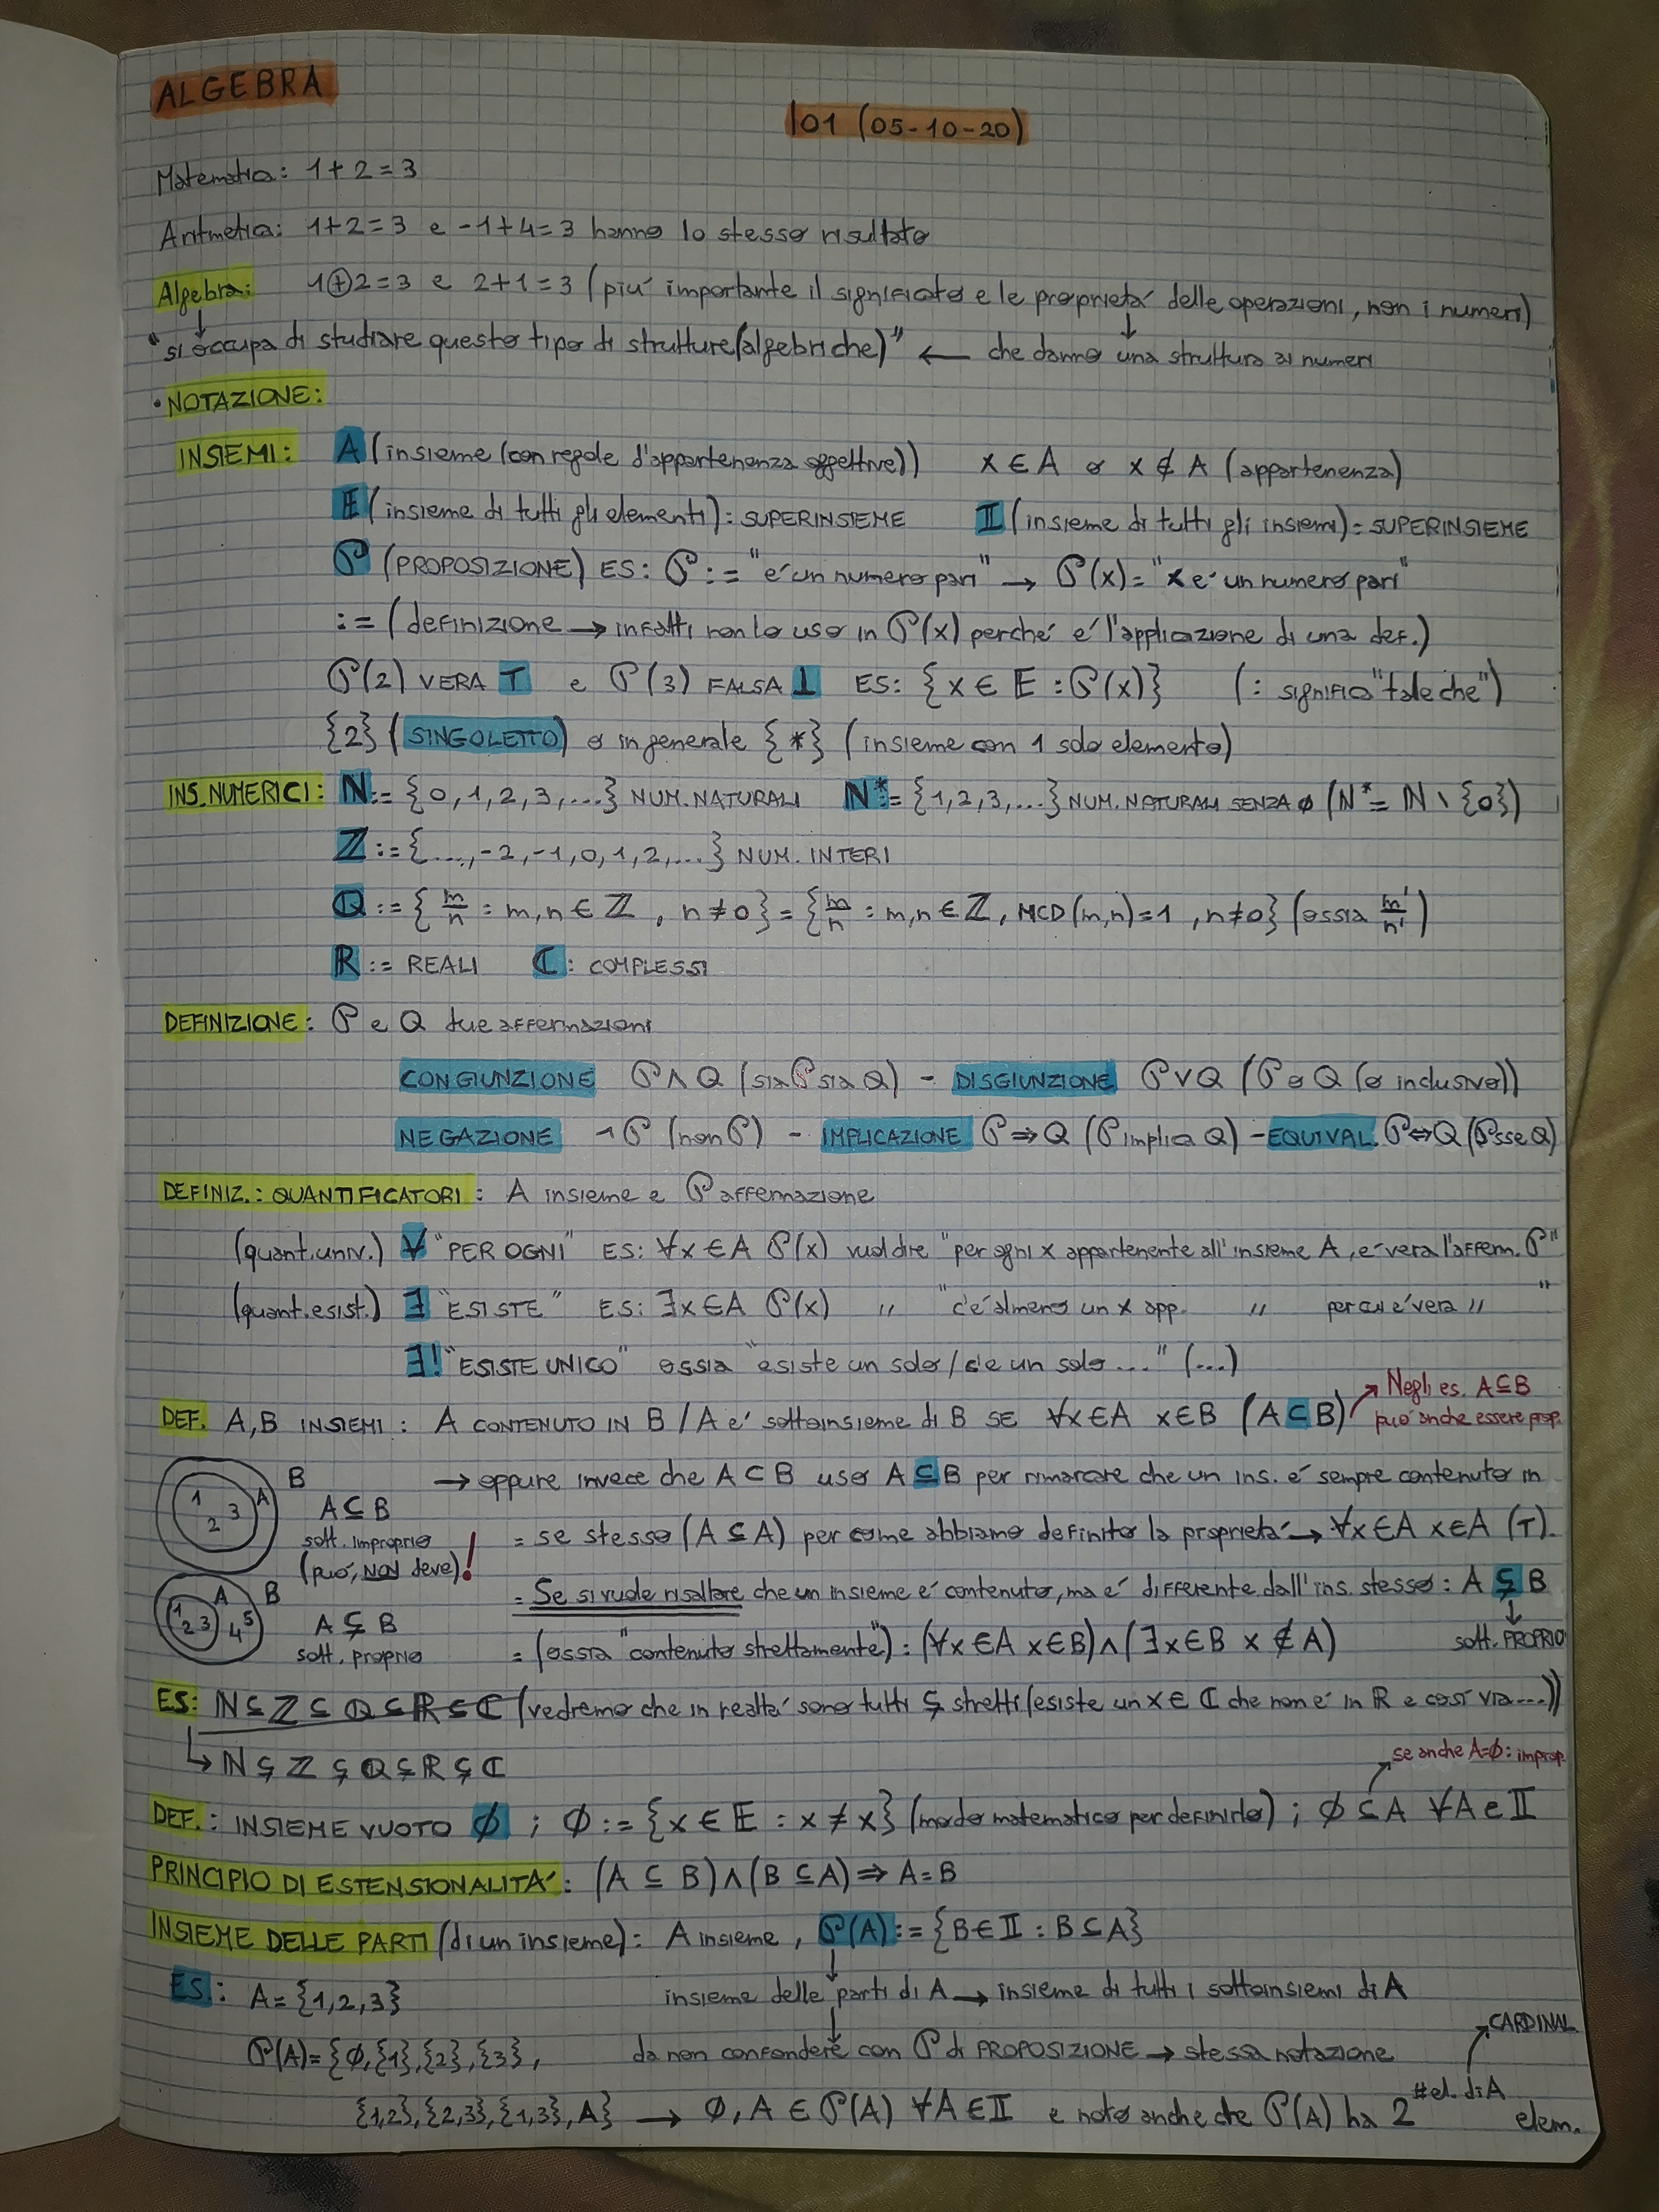 ALGEBRA
l01 (05-10-20)
Matematica: 1+2=3
Aritmetica: 1+2=3 e -1+4=3 hanno lo stesso risultato
Algebra: 1⊕2=3 e 2+1=3 (piú importante il significato e le proprietá delle operazioni, non i numeri)
↓ ↓
"si occupa di studiare questo tipo di strutture (algebriche)" ← che danno una struttura ai numeri
• NOTAZIONE:
INSIEMI: A (insieme (con regole d'appartenenza oggettive)) x ∈ A o x ∉ A (appartenenza)
𝔼 (insieme di tutti gli elementi): SUPERINSIEME 𝕀 (insieme di tutti gli insiemi): SUPERINSIEME
𝒫 (PROPOSIZIONE) ES: 𝒫 := "é un numero pari" → 𝒫(x)= "x é un numero pari"
:= (definizione → infatti non lo uso in 𝒫(x) perché é l'applicazione di una def.)
𝒫(2) VERA T e 𝒫(3) FALSA ⊥ ES: {x ∈ 𝔼 : 𝒫(x)} (: significa "tale che")
{2} (SINGOLETTO) o in generale {*} (insieme con 1 solo elemento)
INS. NUMERICI: ℕ:= {0,1,2,3,...} NUM. NATURALI ℕ*:= {1,2,3,...} NUM. NATURALI SENZA ∅ (ℕ*= ℕ \ {0})
ℤ:={...,-2,-1,0,1,2,...} NUM. INTERI
ℚ := { m/n : m,n ∈ ℤ, n≠0} = { m/n : m,n ∈ ℤ, MCD(m,n)=1, n≠0} (ossia m'/n')
ℝ := REALI ℂ: COMPLESSI
DEFINIZIONE: 𝒫 e Q due affermazioni
CONGIUNZIONE 𝒫 ∧ Q (sia 𝒫 sia Q) - DISGIUNZIONE 𝒫 ∨ Q (𝒫 o Q (o inclusivo))
NEGAZIONE ¬𝒫 (non 𝒫) - IMPLICAZIONE 𝒫 ⇒ Q (𝒫 implica Q) - EQUIVAL. 𝒫⇔Q (𝒫 sse Q)
DEFINIZ.: QUANTIFICATORI: A insieme e 𝒫 affermazione
(quant. univ.) ∀ "PER OGNI" ES: ∀x ∈ A 𝒫(x) vuol dire "per ogni x appartenente all'insieme A, é vera l'afferm. 𝒫"
(quant. esist.) ∃ "ESISTE" ES: ∃x ∈ A 𝒫(x) " "c'é almeno un x app. " per cui é vera " "
∃! "ESISTE UNICO" ossia "esiste un solo / c'e un solo ..." (...)
DEF. A,B INSIEMI: A CONTENUTO IN B / A é sottoinsieme di B SE ∀x ∈ A x ∈ B (A ⊂ B) ↗ Negli es. A ⊆ B
può anche essere prop.
→ oppure invece che A ⊂ B uso A ⊆ B per rimarcare che un ins. é sempre contenuto in
1 2 3 A B A ⊆ B
sott. improprio
(può, NON deve)!
= se stesso (A ⊆ A) per come abbiamo definito la proprietá → ∀x ∈ A x ∈ A (T).
= Se si vuole risaltare che un insieme é contenuto, ma é differente dall'ins. stesso: A ⊊ B
↓
sott. PROPRIO
1 2 3 4 5 A B A ⊊ B
sott. proprio
= (ossia "contenuto strettamente"): (∀x ∈ A x ∈ B) ∧ (∃x ∈ B x ∉ A)
ES: ℕ ⊆ ℤ ⊆ ℚ ⊆ ℝ ⊆ ℂ (vedremo che in realtá sono tutti ⊊ stretti (esiste un x ∈ ℂ che non é in ℝ e cosí via...))
↳ ℕ ⊊ ℤ ⊊ ℚ ⊊ ℝ ⊊ ℂ
se anche A=∅: improp.
DEF.: INSIEME VUOTO ∅ ; ∅ := {x ∈ 𝔼 : x ≠ x} (modo matematico per definirlo) ; ∅ ⊆ A ∀A ∈ 𝕀
PRINCIPIO DI ESTENSIONALITÁ: (A ⊆ B) ∧ (B ⊆ A) ⇒ A = B
INSIEME DELLE PARTI (di un insieme): A insieme, 𝒫(A) := {B ∈ 𝕀 : B ⊆ A}
ES.: A = {1,2,3} insieme delle parti di A → insieme di tutti i sottoinsiemi di A
𝒫(A) = {∅,{1},{2},{3}, da non confondere con 𝒫 di PROPOSIZIONE → stessa notazione
CARDINAL.
{1,2},{2,3},{1,3},A} → ∅, A ∈ 𝒫(A) ∀A ∈ 𝕀 e noto anche che 𝒫(A) ha 2^#el. di A elem.